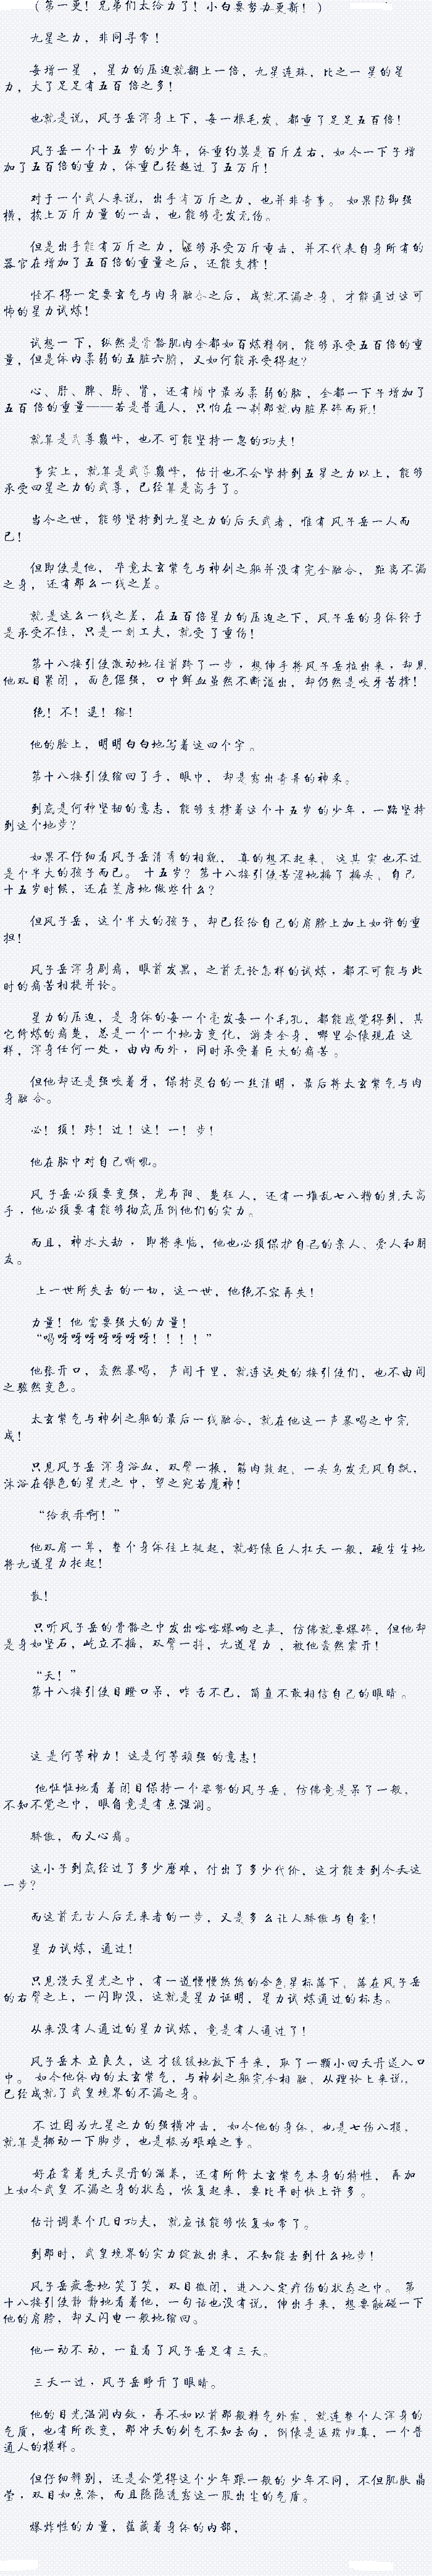 （第一更！兄弟们太给力了！小白要努力更新！）
九星之力，非同寻常！
每增一星，星力的压迫就翻上一倍，九星连珠，比之一星的星
力，大了足足有五百倍之多！
也就是说，风子岳浑身上下，每一根毛发，都重了足足五百倍！
风子岳一个十五岁的少年，体重约莫是百斤左右，如今一下子增
加了五百倍的重力，体重已经超过了五万斤！
对于一个武人来说，出手有万斤之力，也并非奇事。如果防御强
横，挨上万斤力量的一击，也能够毫发无伤。
但是出手能有万斤之力，能够承受万斤重击，并不代表自身所有的
器官在增加了五百倍的重量之后，还能支撑！
怪不得一定要玄气与肉身融合之后，成就不漏之身，才能通过这可
怖的星力试炼！
试想一下，纵然是骨骼肌肉全都如百炼精钢，能够承受五百倍的重
量，但是体内柔弱的五脏六腑，又如何能承受得起？
心、肝、脾、肺、肾，还有颅中最为柔弱的脑，全都一下子增加了
五百倍的重量——若是普通人，只怕在一刹那就内脏尽碎而死！
就算是武尊巅峰，也不可能坚持一息的功夫！
事实上，就算是武尊巅峰，估计也不会坚持到五星之力以上，能够
承受四星之力的武尊，已经算是高手了。
当今之世，能够坚持到九星之力的后天武者，惟有风子岳一人而
已！
但即使是他，毕竟太玄紫气与神剑之躯并没有完全融合，距离不漏
之身，还有那么一线之差。
就是这么一线之差，在五百倍星力的压迫之下，风子岳的身体终于
是承受不住，只是一刻工夫，就受了重伤！
第十八接引使激动地往前跨了一步，想伸手将风子岳拉出来，却见
他双目紧闭，面色倔强，口中鲜血虽然不断溢出，却仍然是咬牙苦撑！
绝！不！退！缩！
他的脸上，明明白白地写着这四个字。
第十八接引使缩回了手，眼中，却是露出奇异的神采。
到底是何种坚韧的意志，能够支撑着这个十五岁的少年，一路坚持
到这个地步？
如果不仔细看风子岳清秀的相貌，真的想不起来，这其实也不过
是个半大的孩子而已。十五岁？第十八接引使苦涩地摇了摇头，自己
十五岁时候，还在荒唐地做些什么？
但风子岳，这个半大的孩子，却已经给自己的肩膀上加上如许的重
担！
风子岳浑身剧痛，眼前发黑，之前无论怎样的试炼，都不可能与此
时的痛苦相提并论。
星力的压迫，是身体的每一个毫发每一个毛孔，都能感觉得到，其
它修炼的痛楚，总是一个一个地方变化，游走全身，哪里会像现在这
样，浑身任何一处，由内而外，同时承受着巨大的痛苦。
但他却还是强咬着牙，保持灵台的一丝清明，最后将太玄紫气与肉
身融合。
必！须！跨！过！这！一！步！
他在脑中对自己嘶吼。
风子岳必须要变强，龙布阳、楚狂人，还有一堆乱七八糟的先天高
手，他必须要有能够彻底压倒他们的实力。
而且，神水大劫，即将来临，他也必须保护自己的亲人、爱人和朋
友。
上一世所失去的一切，这一世，他绝不容再失！
力量！他需要强大的力量！
“喝呀呀呀呀呀呀呀！！！！”
他张开口，轰然暴喝，声闻千里，就连远处的接引使们，也不由闻
之骇然变色。
太玄紫气与神剑之躯的最后一线融合，就在他这一声暴喝之中完
成！
只见风子岳浑身浴血，双臂一振，筋肉鼓起，一头乌发无风自飘，
沐浴在银色的星光之中，望之宛若魔神！
“给我开啊！”
他双肩一耸，整个身体往上挺起，就好像巨人扛天一般，硬生生地
将九道星力托起！
散！
只听风子岳的骨骼之中发出喀喀爆响之声，仿佛就要爆碎，但他却
是身如坚石，屹立不摇，双臂一抖，九道星力，被他轰然震开！
“天！”
第十八接引使目瞪口呆，咋舌不已，简直不敢相信自己的眼睛。
这是何等神力！这是何等顽强的意志！
他怔怔地看着闭目保持一个姿势的风子岳，仿佛竟是呆了一般，
不知不觉之中，眼角竟是有点湿润。
骄傲，而又心痛。
这小子到底经过了多少磨难，付出了多少代价，这才能走到今天这
一步？
而这前无古人后无来者的一步，又是多么让人骄傲与自豪！
星力试炼，通过！
只见漫天星光之中，有一道慢慢悠悠的金色星标落下，落在风子岳
的右臂之上，一闪即没，这就是星力证明，星力试炼通过的标志。
从来没有人通过的星力试炼，竟是有人通过了！
风子岳木立良久，这才缓缓地放下手来，取了一颗小回天丹送入口
中。如今他体内的太玄紫气，与神剑之躯完全相融，从理论上来说，
已经成就了武皇境界的不漏之身。
不过因为九星之力的强横冲击，如今他的身体，也是七伤八损，
就算是挪动一下脚步，也是极为艰难之事。
好在靠着先天灵丹的滋养，还有所修太玄紫气本身的特性，再加
上如今武皇不漏之身的状态，恢复起来，要比平时快上许多。
估计调养个几日功夫，就应该能够恢复如常了。
到那时，武皇境界的实力绽放出来，不知能去到什么地步！
风子岳疲惫地笑了笑，双目微闭，进入入定疗伤的状态之中。第
十八接引使静静地看着他，一句话也没有说，伸出手来，想要触碰一下
他的肩膀，却又闪电一般地缩回。
他一动不动，一直看了风子岳足有三天。
三天一过，风子岳睁开了眼睛。
他的目光温润内敛，再不如以前那般精气外露，就连整个人浑身的
气质，也有所改变，那冲天的剑气不知去向，倒像是返璞归真，一个普
通人的模样。
但仔细辨别，还是会觉得这个少年跟一般的少年不同，不但肌肤晶
莹，双目如点漆，而且隐隐透露这一股出尘的气质。
爆炸性的力量，蕴藏着身体的内部，